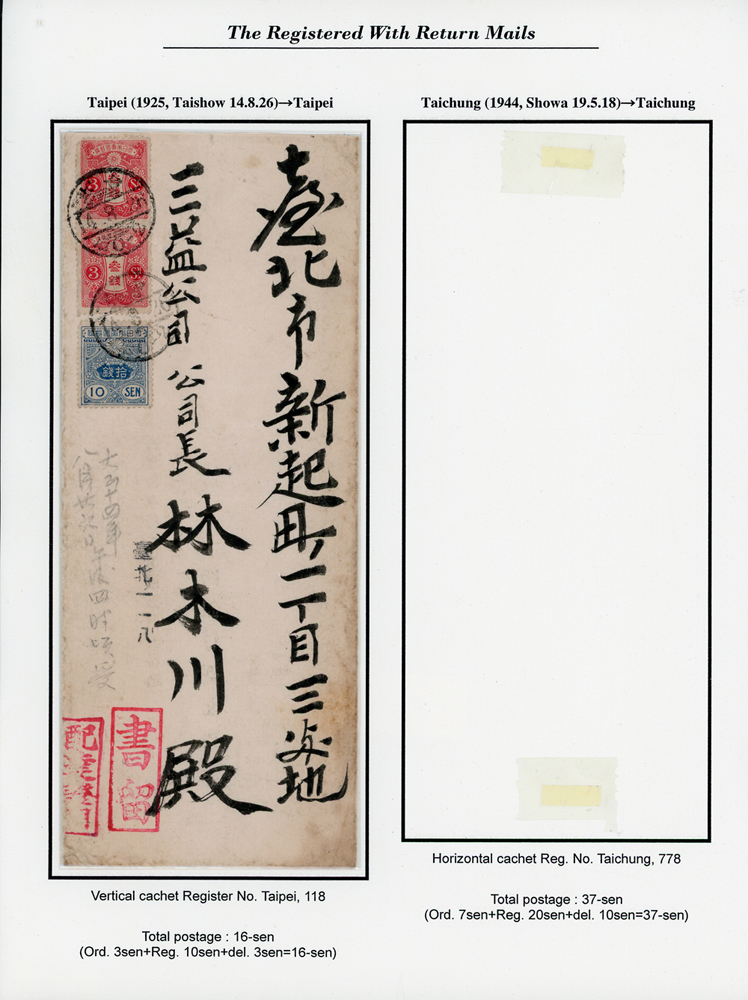 The Registered With Return Mails
Taipei (1925, Taishow 14.8.26)→Taipei
臺北市新起町一丁目三番地
三益公司 公司長
林木川殿
3
3
叁銭
拾銭
10 SEN
書留
配達證明
Vertical cachet Register No. Taipei, 118
Total postage : 16-sen
(Ord. 3sen+Reg. 10sen+del. 3sen=16-sen)
Taichung (1944, Showa 19.5.18)→Taichung
Horizontal cachet Reg. No. Taichung, 778
Total postage : 37-sen
(Ord. 7sen+Reg. 20sen+del. 10sen=37-sen)